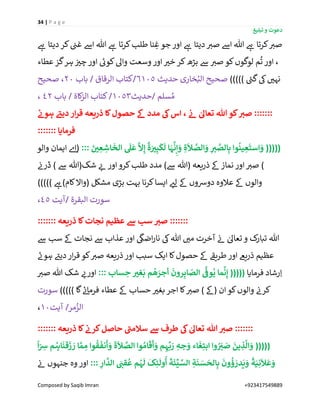 34 | P a g e
دعوت و تبلیغ
صبر کرتا ہے اللہ اسے صبر دیتا ہے اور جو غِنا طلب کرتا ہے اللہ اسے غنی کر دیتا ہے
، تُم لوگوں کو صبر سے بڑھ کر خیر اور وسعت والی کوئی اور چیز ہر گز عطاء
نہیں کی گئی))))) صحیح البُخاری حدیث ٦١٠٥/کتاب الرقاق / باب ٢٠، صحیح
مُسلم /حدیث ١٠٥٣/کتاب الزکاۃ / باب ٤٢ ،
::::::: صبر کو اللہ تعالیٰ نے ، اس کی مدد کے حصول کا ذریعہ قرار دیتے ہوئے
فرمایا :::::::
))))) وَاسْتَعِينُوا بِالصَّبْرِ وَالصَّلَاةِ وَإِنَّهَا لَكَبِيرَةٌ إِلَّا عَلَى الْخَاشِعِينَ ::: (اے ایمان والو
) صبر اور نماز کے ذریعہ (اللہ سے) مدد طلب کرو اور بے شک (اللہ سے ) ڈرنے
والوں کے علاوہ دوسروں کے لیے ایسا کرنا بہت بڑی مشکل (والا کام) ہے)))))
سورت البقرۃ /آیت ٤٥،
::::::: صبر سب سے عظیم نجات کا ذریعہ :::::::
اللہ تبارک و تعالیٰ نے آخرت میں اللہ کی ناراضگی اور عذاب سے نجات کے سب سے
عظیم ذریعے اور طریقے کے حصول کا ایک سبب اور ذریعہ صبر کو قرار دیتے ہوئے
اِرشاد فرمایا))))) إِنَّمَا يُوَفَّى الصَّابِرُونَ أَجْرَهُمْ بِغَيْرِ حِسَابٍ ::: اور بے شک اللہ صبر
کرنے والوں کو ان (کے ) صبر کا اجر بغیر حساب کے عطاء فرمائے گا))))) سورت
الزُمر/ آیت ١٠،
::::::: صبر اللہ تعالیٰ کی طرف سے سلامتی حاصل کرنے کا ذریعہ :::::::
))))) وَالَّذِينَ صَبَرُوا ابْتِغَاءَ وَجْهِ رَبِّهِمْ وَأَقَامُوا الصَّلَاةَ وَأَنْفَقُوا مِمَّا رَزَقْنَاهُمْ سِرًّا
وَعَلَانِيَةً وَيَدْرَءُونَ بِالْحَسَنَةِ السَّيِّئَةَ أُولَئِكَ لَهُمْ عُقْبَى الدَّارِ ::: اور وہ جنہوں نے
Composed by Saqib Imran +923417549889